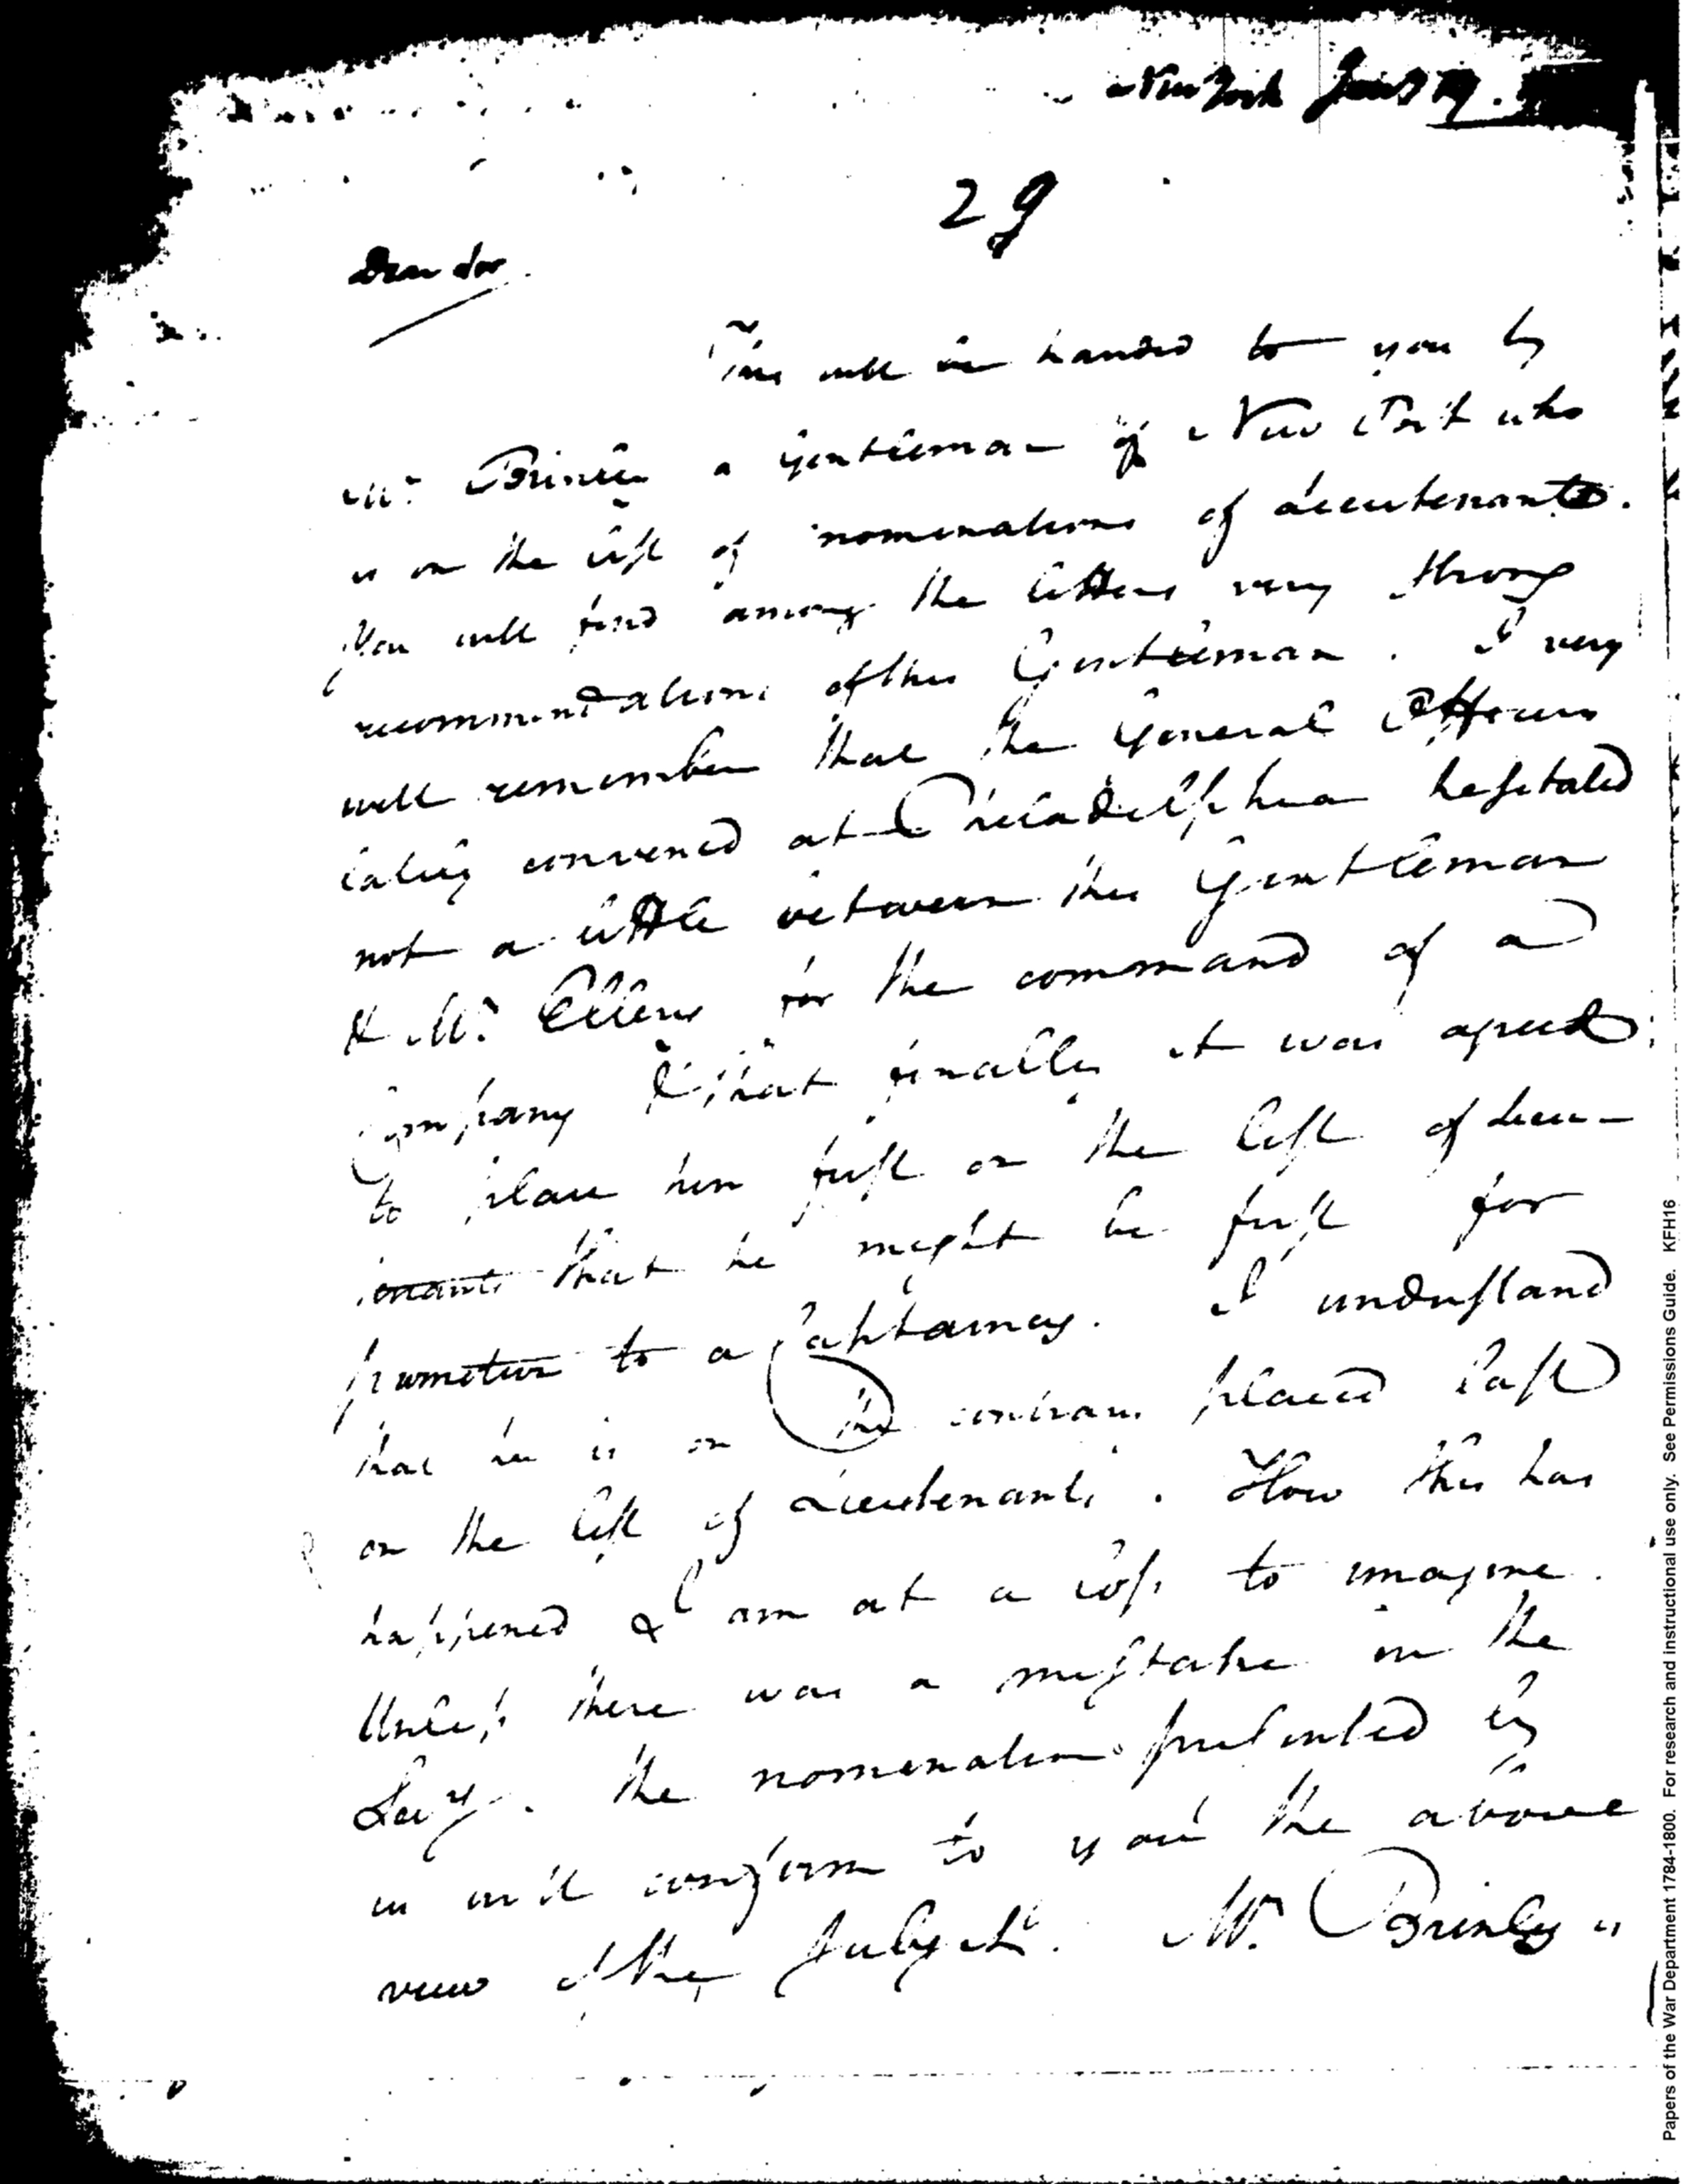 New York
29
Dear Sir
This will be handed to you by
Mr. Brinley a Gentleman of New Port who
is on the list of nominations of Lieutenants.
You will find among the letters very strong
recommendations of this Gentleman. I very
well remember that the General Officers
lately convened at Philadelphia hesitated
not a little between this Gentleman
& Mr. Ellery for the command of a
Company & that finally it was agreed
to place him first on the list of Lieu-
tenants that he might be first for
promotion to a Captaincy. I understand
that he is on the contrary placed last
on the list of Lieutenants. How this has
happened I am at a loss to imagine.
Unless there was a mistake in the
the nomination presented by
conform to you the above
view of the subject. Mr. Brinley is
Papers of the War Department 1784-1800. For research and instructional use only. See Permissions Guide. KFH16